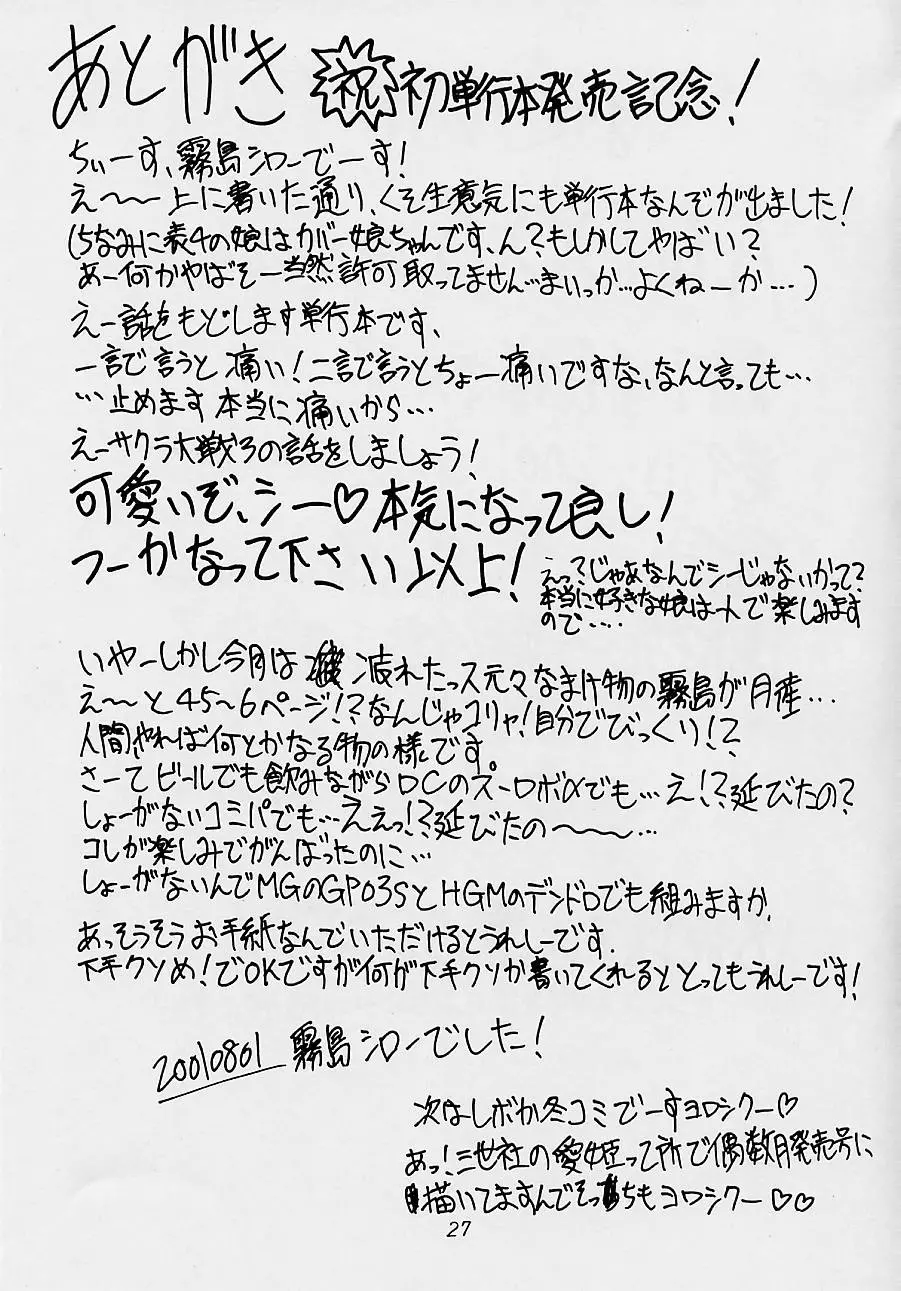 あとがき 祝 初単行本発売記念!
ちぃーす、霧島シローでーす!
え〜〜上に書いた通り、くそ生意気にも単行本なんぞが出ました!
(ちなみに表4の娘はカバー娘ちゃんです、ん?もしかしてやばい?
あー何かやばそー当然許可取ってません…まいっか…よくねーか…)
えー話をもどします単行本です、
一言で言うと痛い!二言で言うとちょー痛いですな、なんと言っても…
…止めます本当に痛いから…
えーサクラ大戦3の話をしましょう!
可愛いぞ、シー♡本気になって良し!
つーかなって下さい以上!
えっ?じゃあなんでシーじゃないかって?
本当に好きな娘は一人で楽しみます
ので‥‥
いやーしかし今月は疲れたっス元々なまけ物の霧島が月産…
え〜と45〜6ページ!?なんじゃコリャ!自分でびっくり!?
人間やれば何とかなる物の様です
さーてビールでも飲みながらDCのスーロボαでも…え!?延びたの?
しょーがないコミパでも…ええっ!?延びたの〜〜〜…
コレが楽しみでがんばったのに…
しょーがないんでMGのGP03SとHGMのデンドロでも組みますか、
あっそうそうお手紙なんていただけるとうれしーです.
下手クソめ!でOKですが何が下手クソか書いてくれるととってもうれしーです!
20010801 霧島シローでした!
次はしボか冬コミでーすヨロシクー♡
あっ!三世社の愛姫って所で偶数月発売号に
描いてますんでそっちもヨロシクー♡♡
27